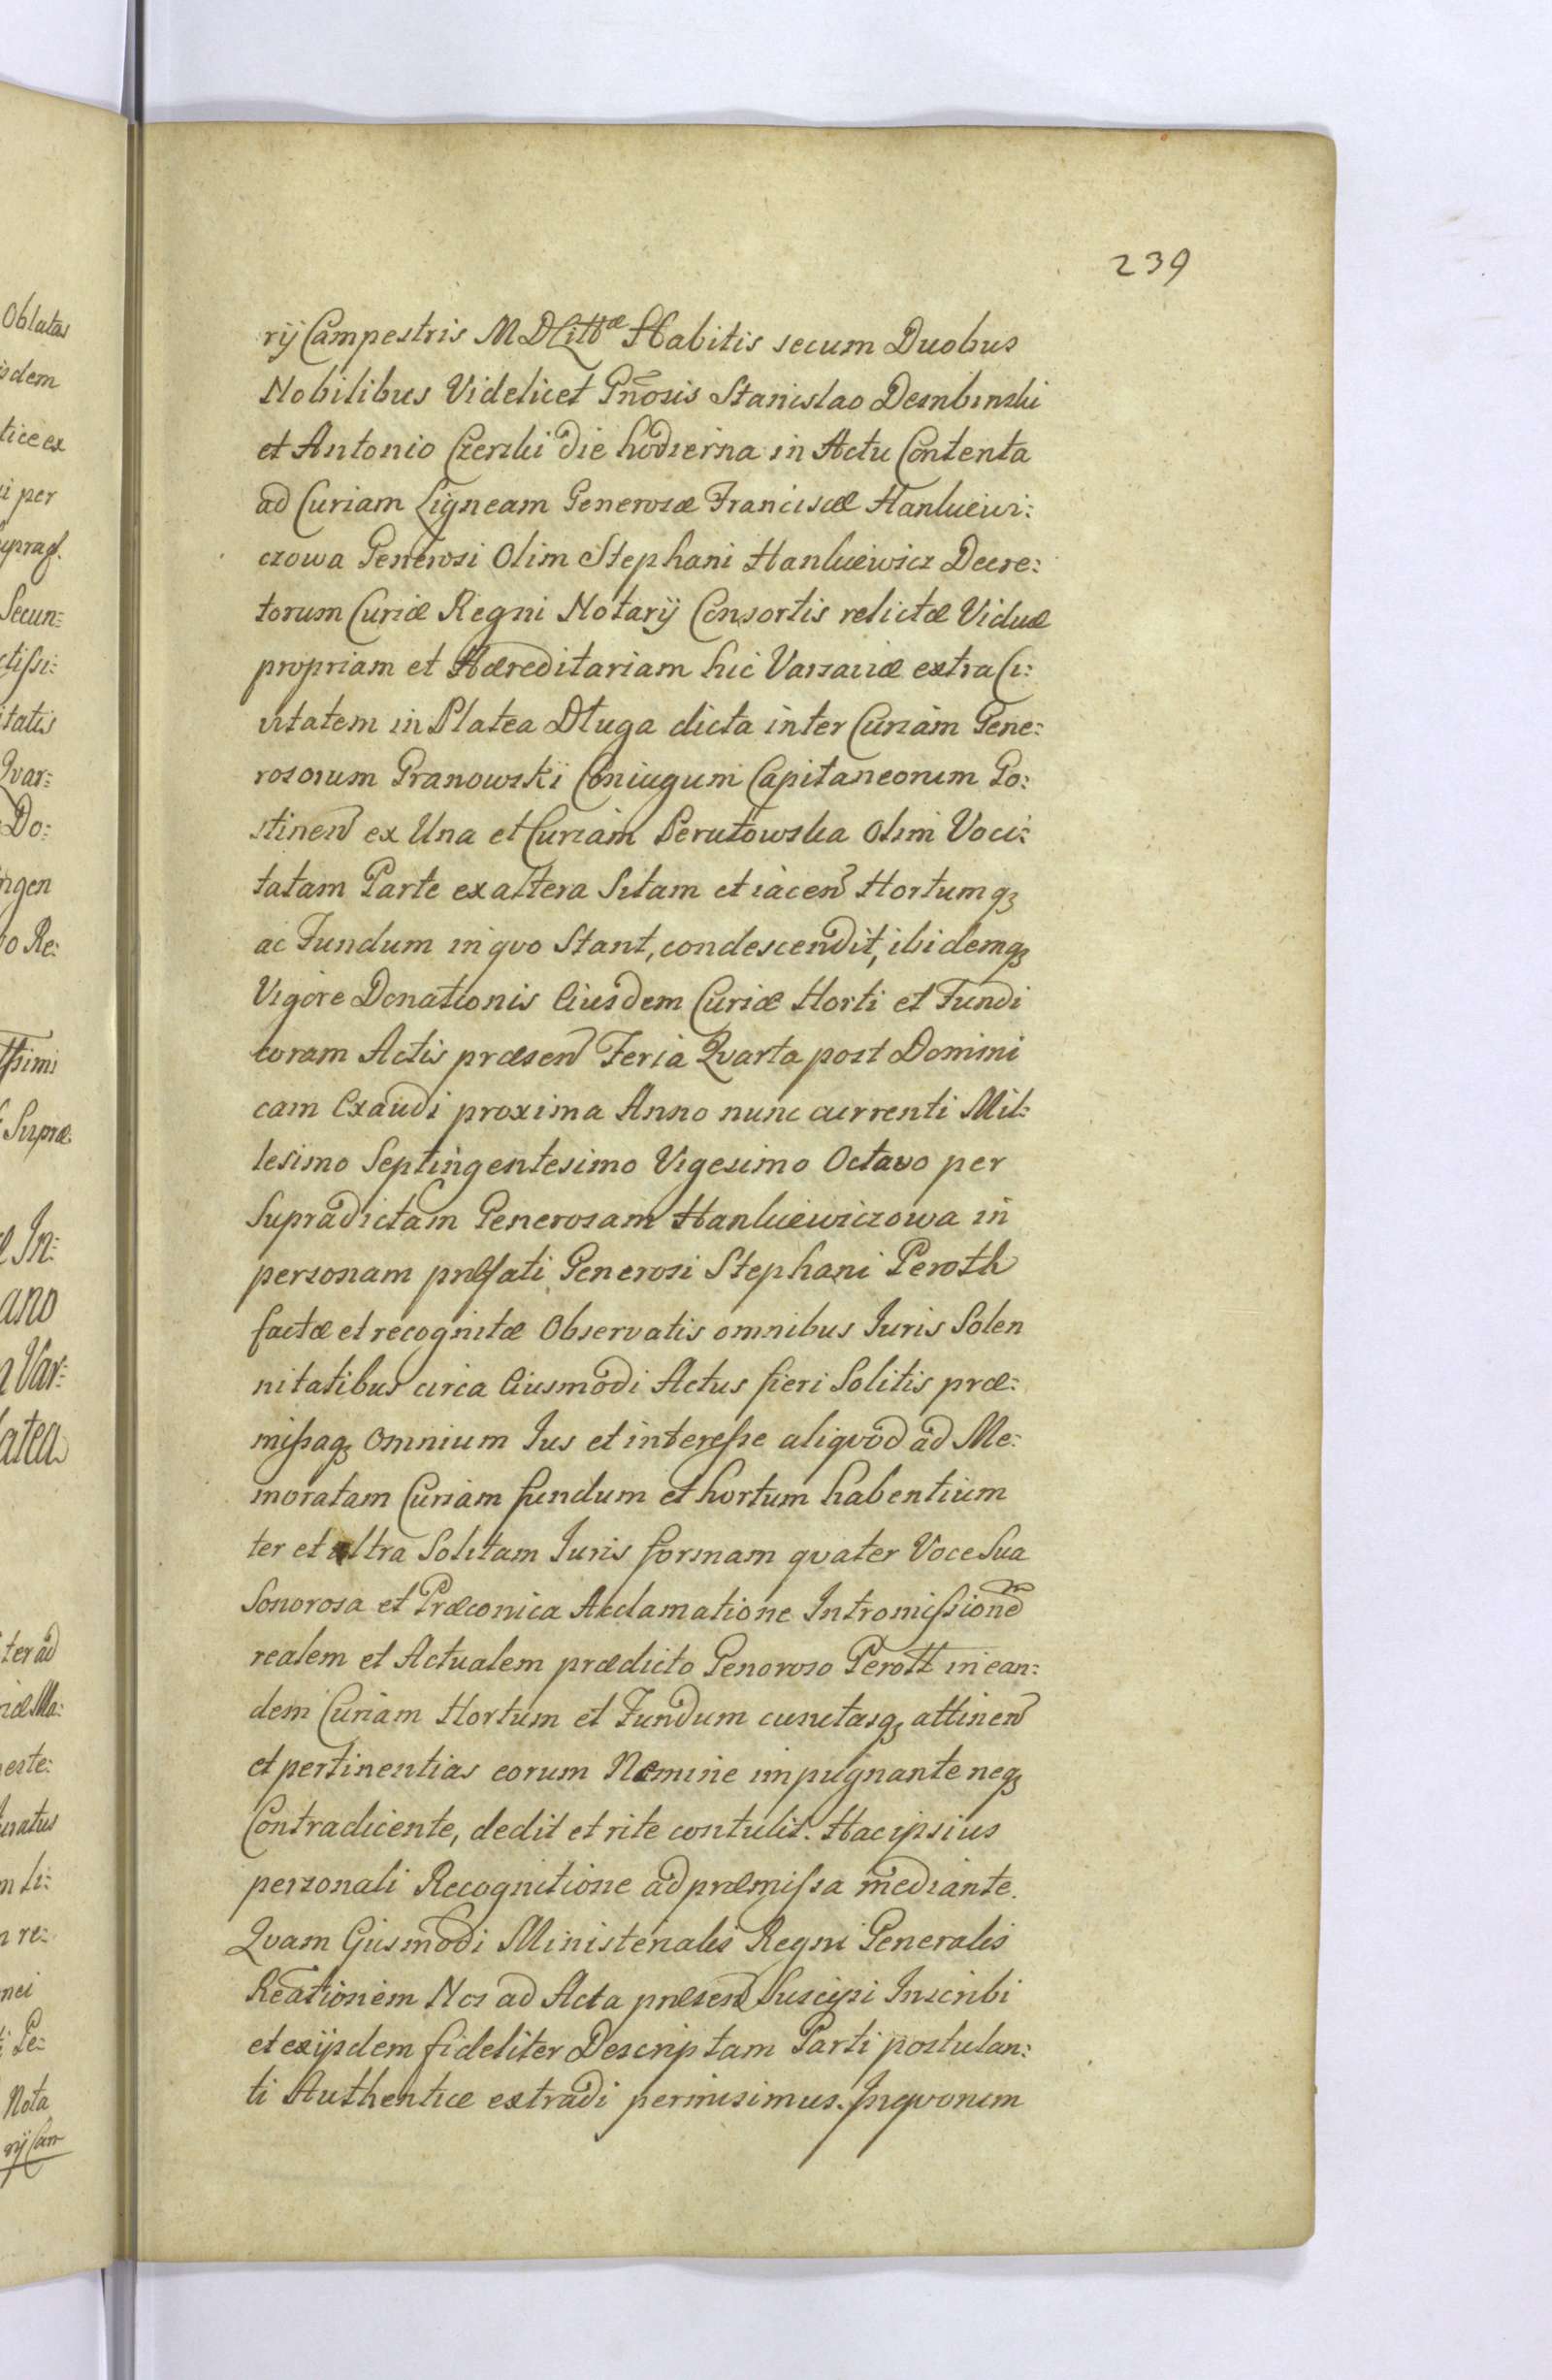 239
rij Campestris M D Littæ Habitis secum Duobus
Nobilibus Videlicet Gnosis Stanislao Dembinski
et Antonio Czerski die hodierna in Actu Contenta
ad Curiam Ligneam Generosæ Franciscæ Hankiewi:
czowa Generosi Olim Stephani Hankiewicz Decre:
torum Curiæ Regni Notarij Consortis relictæ Viduæ
propriam et Hæreditariam hic Varsaviæ extra Ci:
vitatem in Platea Długa dicta inter Curiam Gene:
rosorum Granowski Coniugum Capitaneorum Go:
stinen ex Una et Curiam Perutowska Olim Voci:
tatam Parte ex altera Sitam et iacen Hortumq
ac Fundum in qvo Stant, condescendit, ibidemq
Vigore Donationis Eiusdem Curiæ Horti et Fundi
coram Actis præsen Feria Qvarta post Domini
cam Exaudi proxima Anno nunc currenti Mil:
lesimo Septingentesimo Vigesimo Octavo per
Supradictam Generosam Hankiewiczowa in
personam præfati Generosi Stephani Peroth
factæ et recognitæ Observatis omnibus Iuris Solen
nitatibus circa Eiusmodi Actus fieri Solitis præ:
missaq omnium Ius et interesse aliqvod ad Me:
moratam Curiam fundum et hortum habentium
ter et ultra Solitam Iuris formam qvater Voce Sua
Sonorosa et Præconica Acclamatione Intromissionem
realem et Actualem prædicto Genoroso Perott in ean:
dem Curiam Hortum et Fundum cunctasq attinen
et pertinentias eorum Nemine impugnante neq
Contradicente, dedit et rite contulit. Hac ipsius
personali Recognitione ad præmissa mediante.
Qvam Eiusmodi Ministerialis Regni Generalis
Reationem Nos ad Acta præsen Suscipi Inscribi
et exijsdem fideliter Descriptam Parti postulan:
ti Authenticæ extradi permisimus. Inqvorum